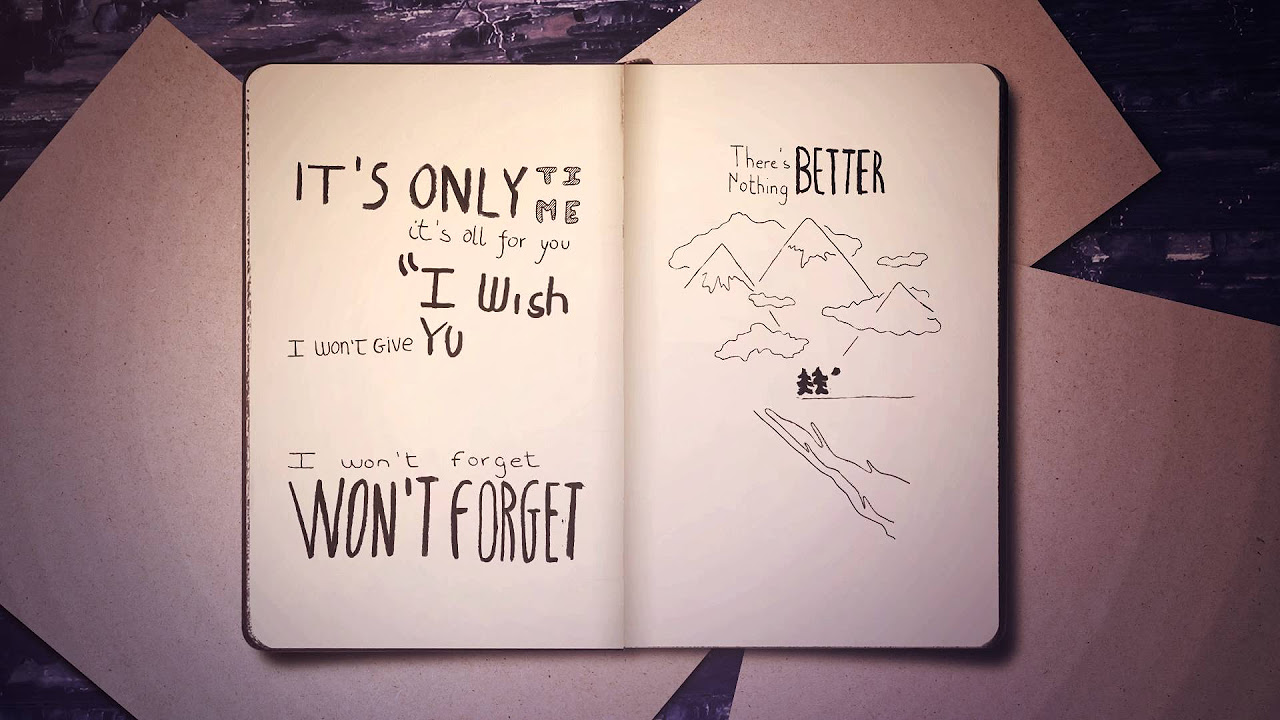 IT'S ONLY TI
ME
it's all for you
“I Wish
I WON'T GIVE YU
I won't forget
WON'T FORGET
There's BETTER
Nothing